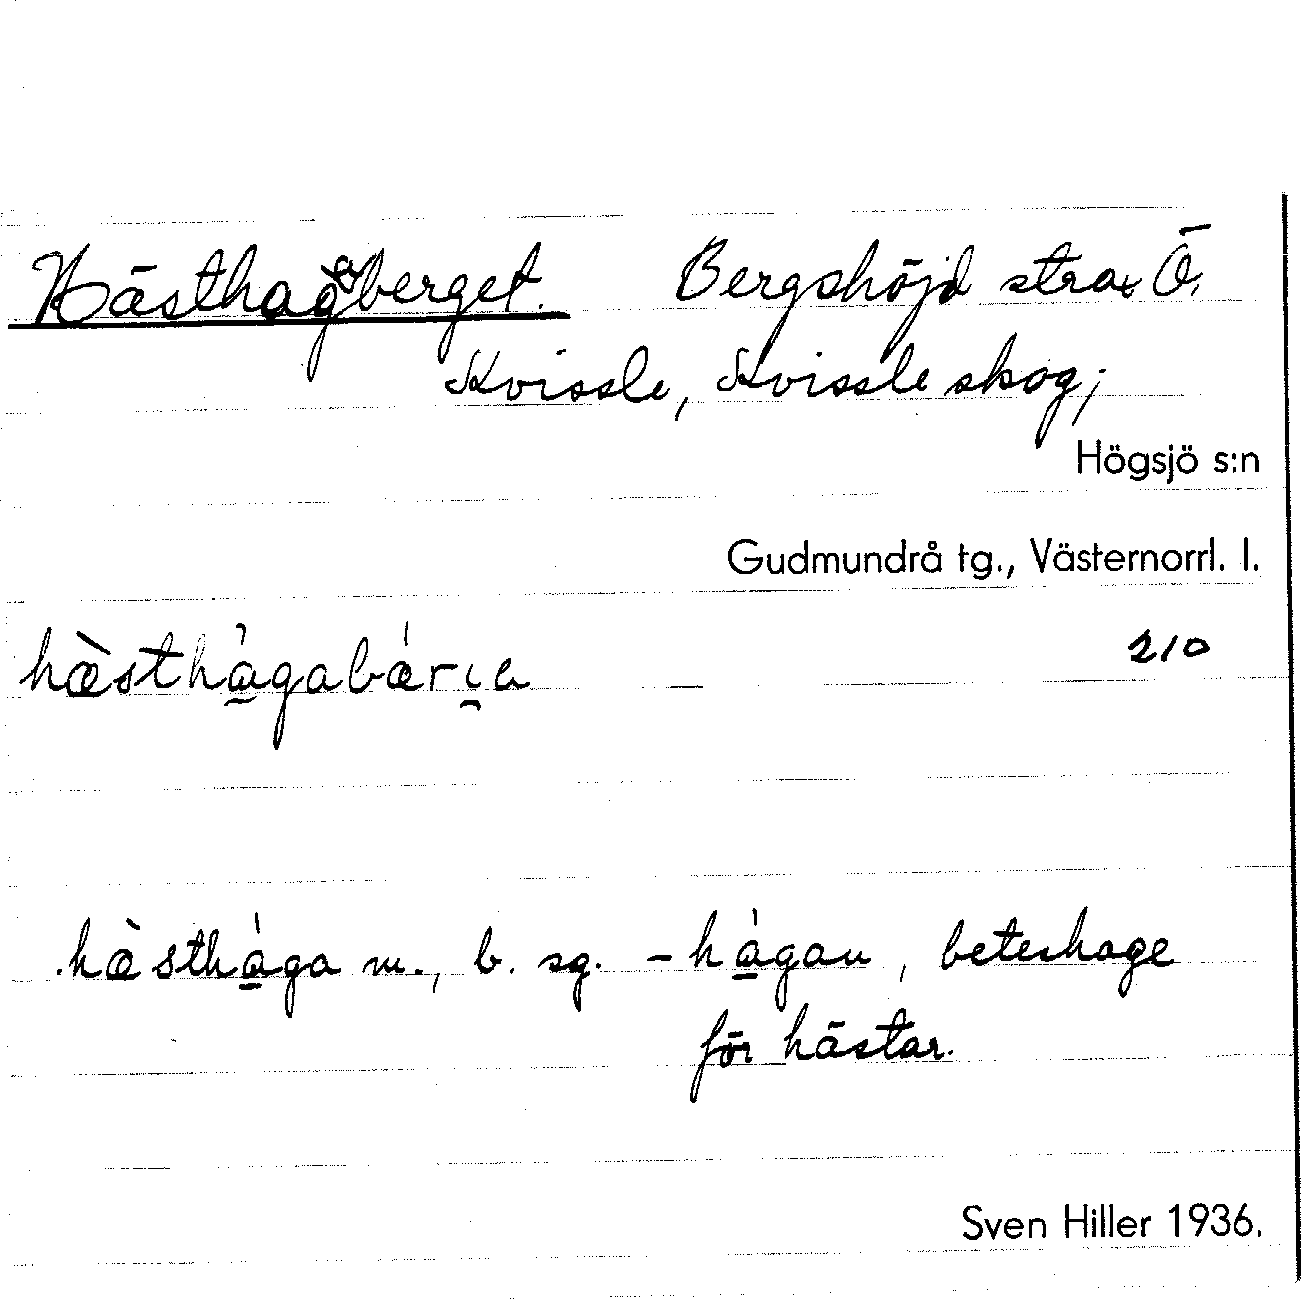 Hästhagberget. Bergshöjd strax Ö.
Kvissle, Kvissle skog;
Högsjö s:n
Gudmundrå tg., Västernorrl. l.
hæ̀stha̱̍gabæ̍rı̱a 210
hæ̀stha̱̍ga m., b. sg. -ha̱̍gan, beteshage
för hästar.
Sven Hiller 1936.